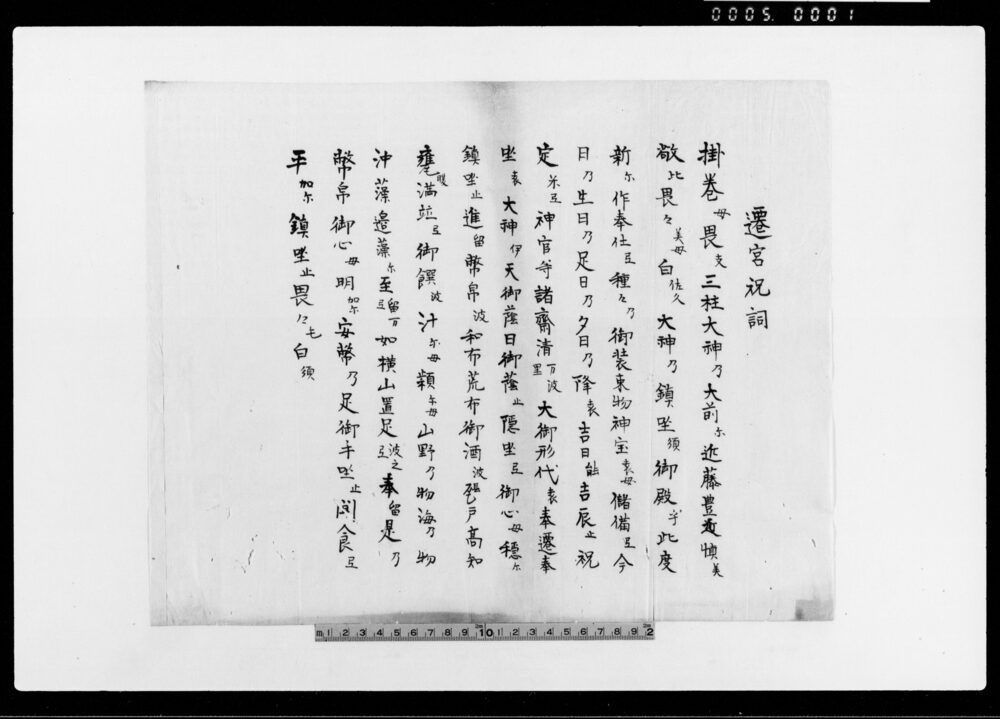 0005. 0001
遷宮祝詞
掛巻毋畏支三柱大神乃大前尓近藤豊 慎美
敬比畏々美毋白佐久大神乃鎮坐須御殿乎此度
新尓作奉仕弖種々乃御装束物神宝袁毋儲備弖今
日乃生日乃足日乃夕日乃降袁吉日能吉辰止祝
定米弖神官等諸齋清万里波大御形代袁奉遷奉
坐袁大神伊天御蔭日御蔭止隠坐弖御心毋穏尓
鎮坐止進留幣帛波和布荒布御酒波 戸高知
腹満竝弖御饌波汁尓毋穎尓毋山野乃物海乃物
沖藻邉藻尓至留万弖如横山置足波之弖奉留是乃
幣帛御心毋明加尓安幣乃足御手坐止聞食弖
平加尓鎮坐止畏々毛白須
m 1 2 3 4 5 6 7 8 9 10 1 2 3 4 5 6 7 8 9 2